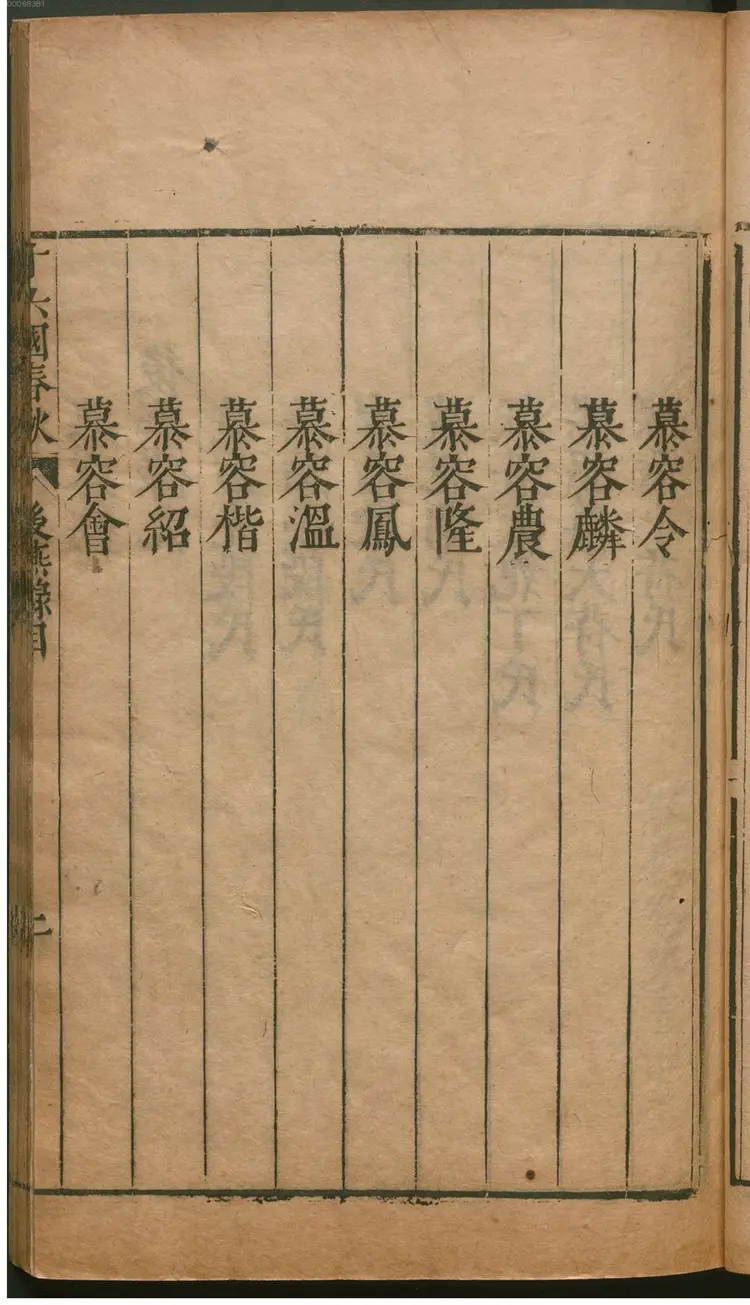 慕容令
慕容麟
慕容農
慕容隆
慕容鳳
慕容溫
慕容楷
慕容紹
慕容會
十六國春秋
後燕錄目
二
00068381